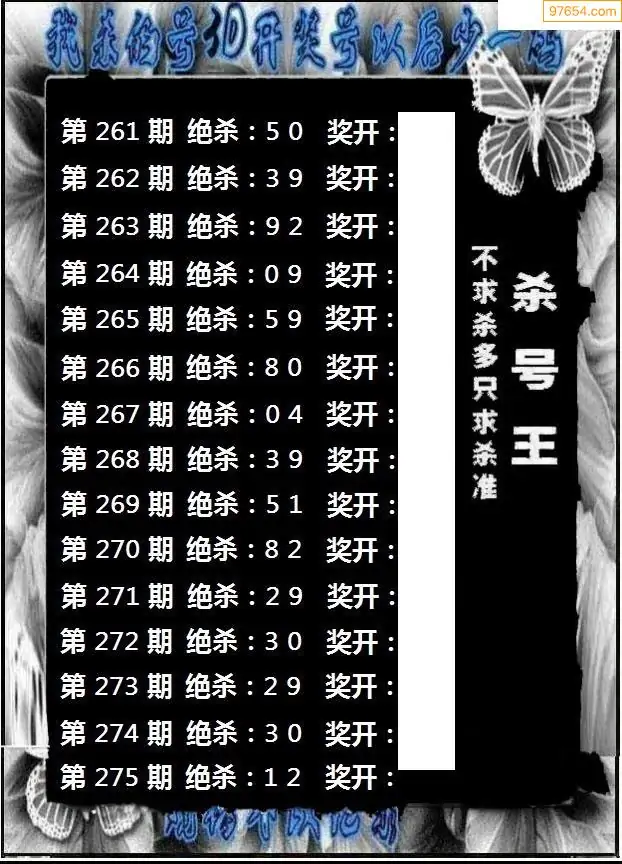 97654.com
我杀的号3D开奖号以后少一码
第 261 期 绝杀：5 0 奖开：
第 262 期 绝杀：3 9 奖开：
第 263 期 绝杀：9 2 奖开：
第 264 期 绝杀：0 9 奖开：
第 265 期 绝杀：5 9 奖开：
第 266 期 绝杀：8 0 奖开：
第 267 期 绝杀：0 4 奖开：
第 268 期 绝杀：3 9 奖开：
第 269 期 绝杀：5 1 奖开：
第 270 期 绝杀：8 2 奖开：
第 271 期 绝杀：2 9 奖开：
第 272 期 绝杀：3 0 奖开：
第 273 期 绝杀：2 9 奖开：
第 274 期 绝杀：3 0 奖开：
第 275 期 绝杀：1 2 奖开：
杀号王
不求杀多只求杀准